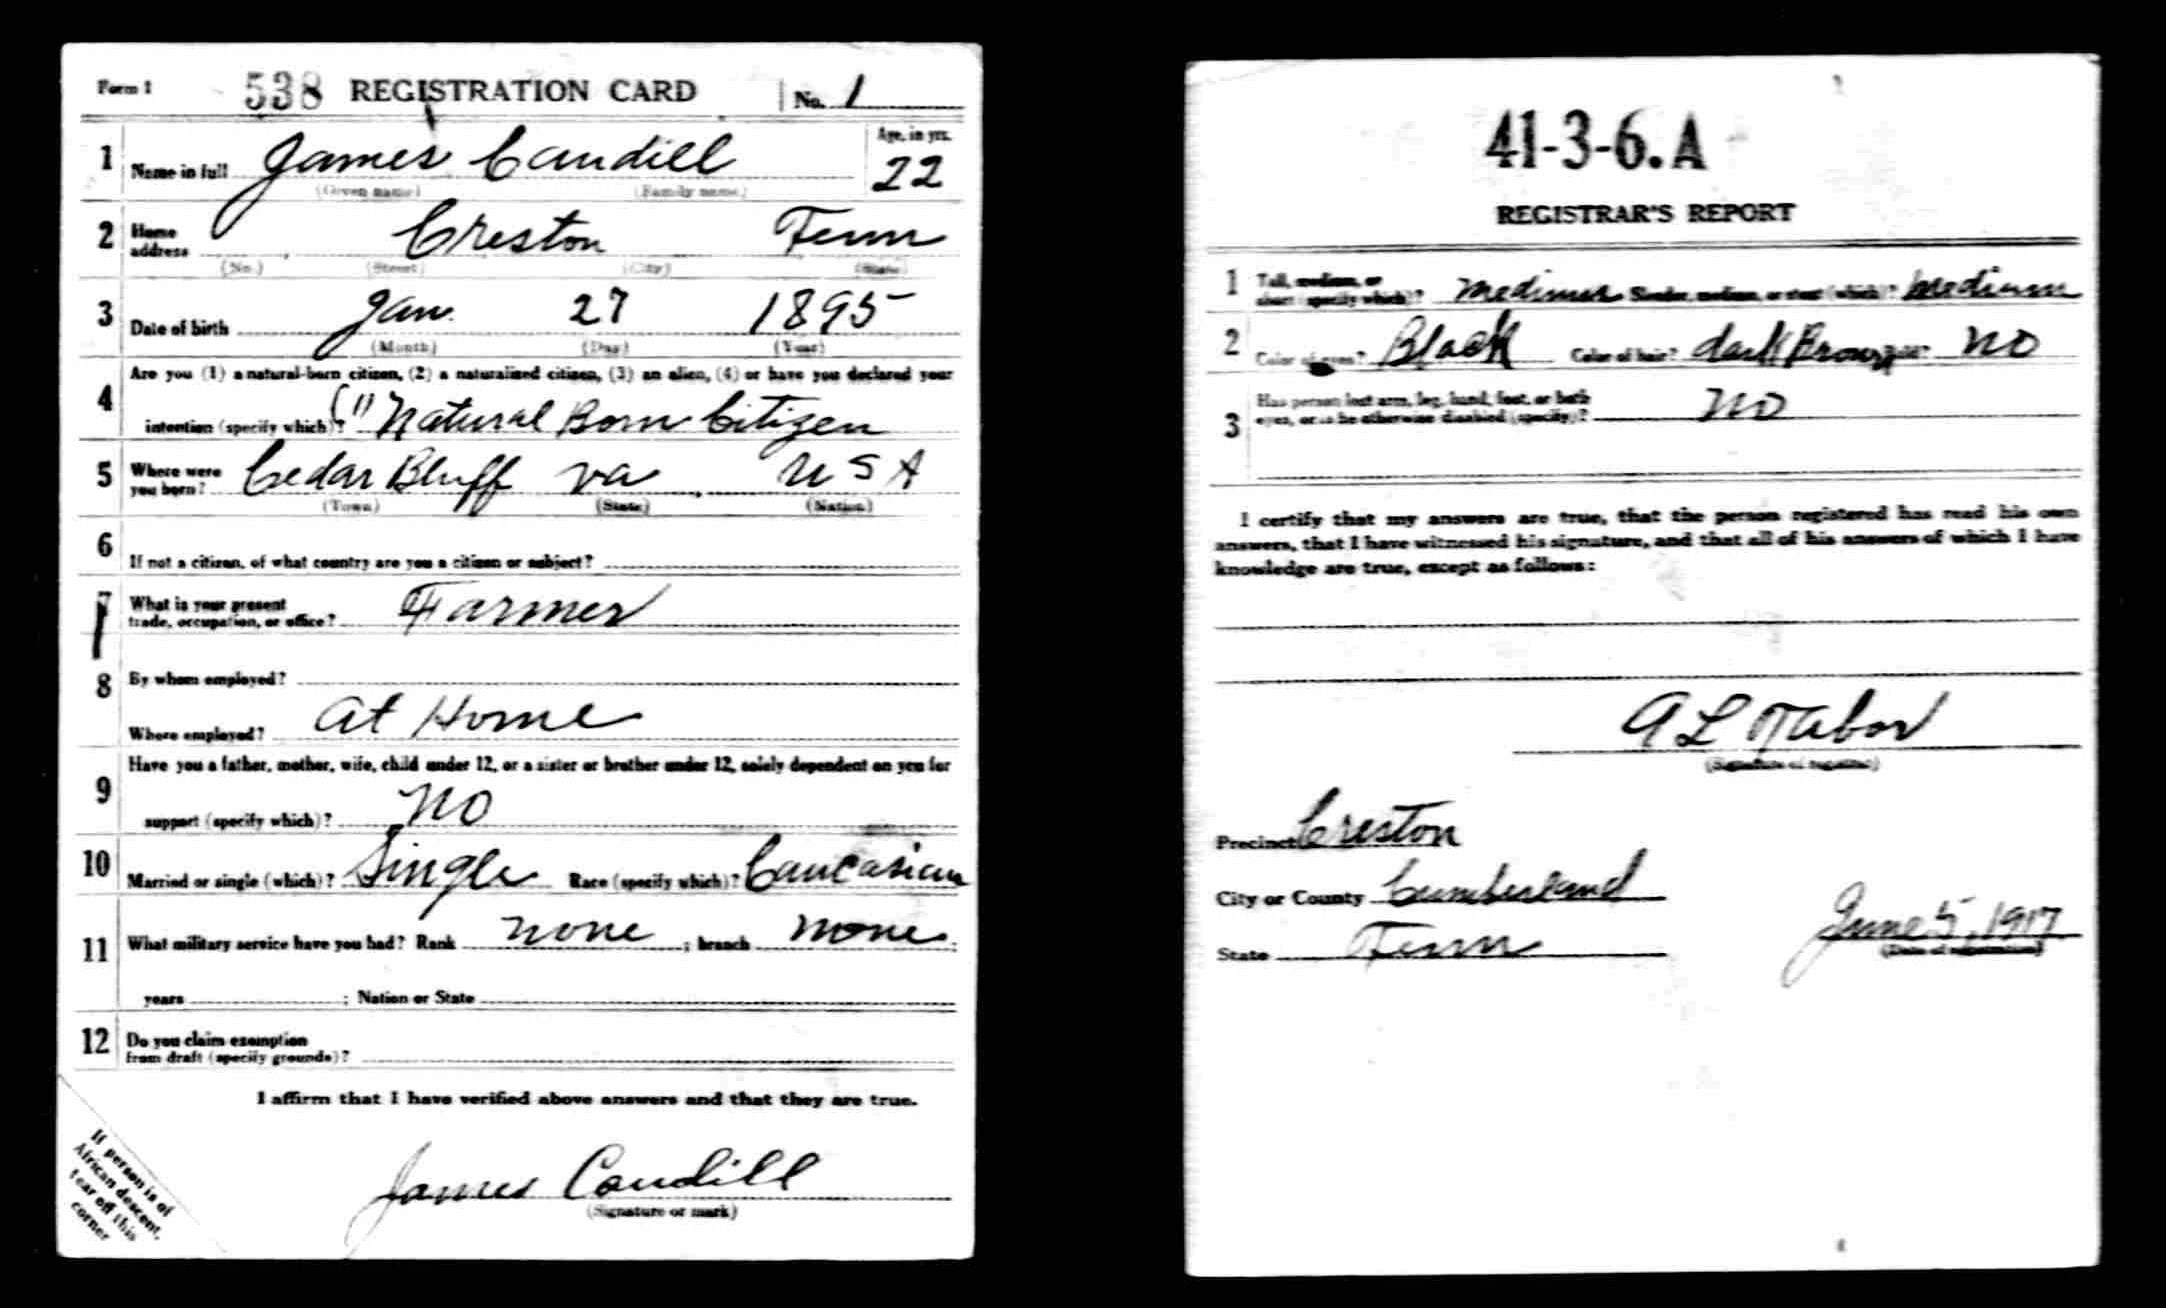 Form 1 538 REGISTRATION CARD No. 1
1 Name in full James Caudill Age, in yrs. 22
(Given name) (Family name)
2 Home address Creston Tenn
(No.) (Street) (City) (State)
3 Date of birth Jan. 27 1895
(Month) (Day) (Year)
Are you (1) a natural-born citizen, (2) a naturalized citizen, (3) an alien, (4) or have you declared your
4 intention (specify which)? (1) Natural Born Citizen
5 Where were you born? Cedar Bluff Va USA
(Town) (State) (Nation)
6 If not a citizen, of what country are you a citizen or subject?
7 What is your present trade, occupation, or office? Farmer
8 By whom employed?
Where employed? at Home
Have you a father, mother, wife, child under 12, or a sister or brother under 12, solely dependent on you for
9 support (specify which)? No
10 Married or single (which)? Single Race (specify which)? Caucasian
11 What military service have you had? Rank none ; branch none ;
years ; Nation or State
12 Do you claim exemption from draft (specify grounds)?
I affirm that I have verified above answers and that they are true.
James Caudill
(Signature or mark)
If person is of
African descent,
tear off this
corner
41-3-6.A
REGISTRAR'S REPORT
1 Tall, medium, or short (specify which)? medium Slender, medium, or stout (which)? medium
2 Color of eyes? Black Color of hair? dark Brown no
3 Has person lost arm, leg, hand, foot, or both eyes, or is he otherwise disabled (specify)? no
I certify that my answers are true, that the person registered has read his own
answers, that I have witnessed his signature, and that all of his answers of which I have
knowledge are true, except as follows:
A L Tabor
(Signature of registrar)
Precinct Creston
City or County Cumberland
State Tenn June 5, 1917
(Date of registration)